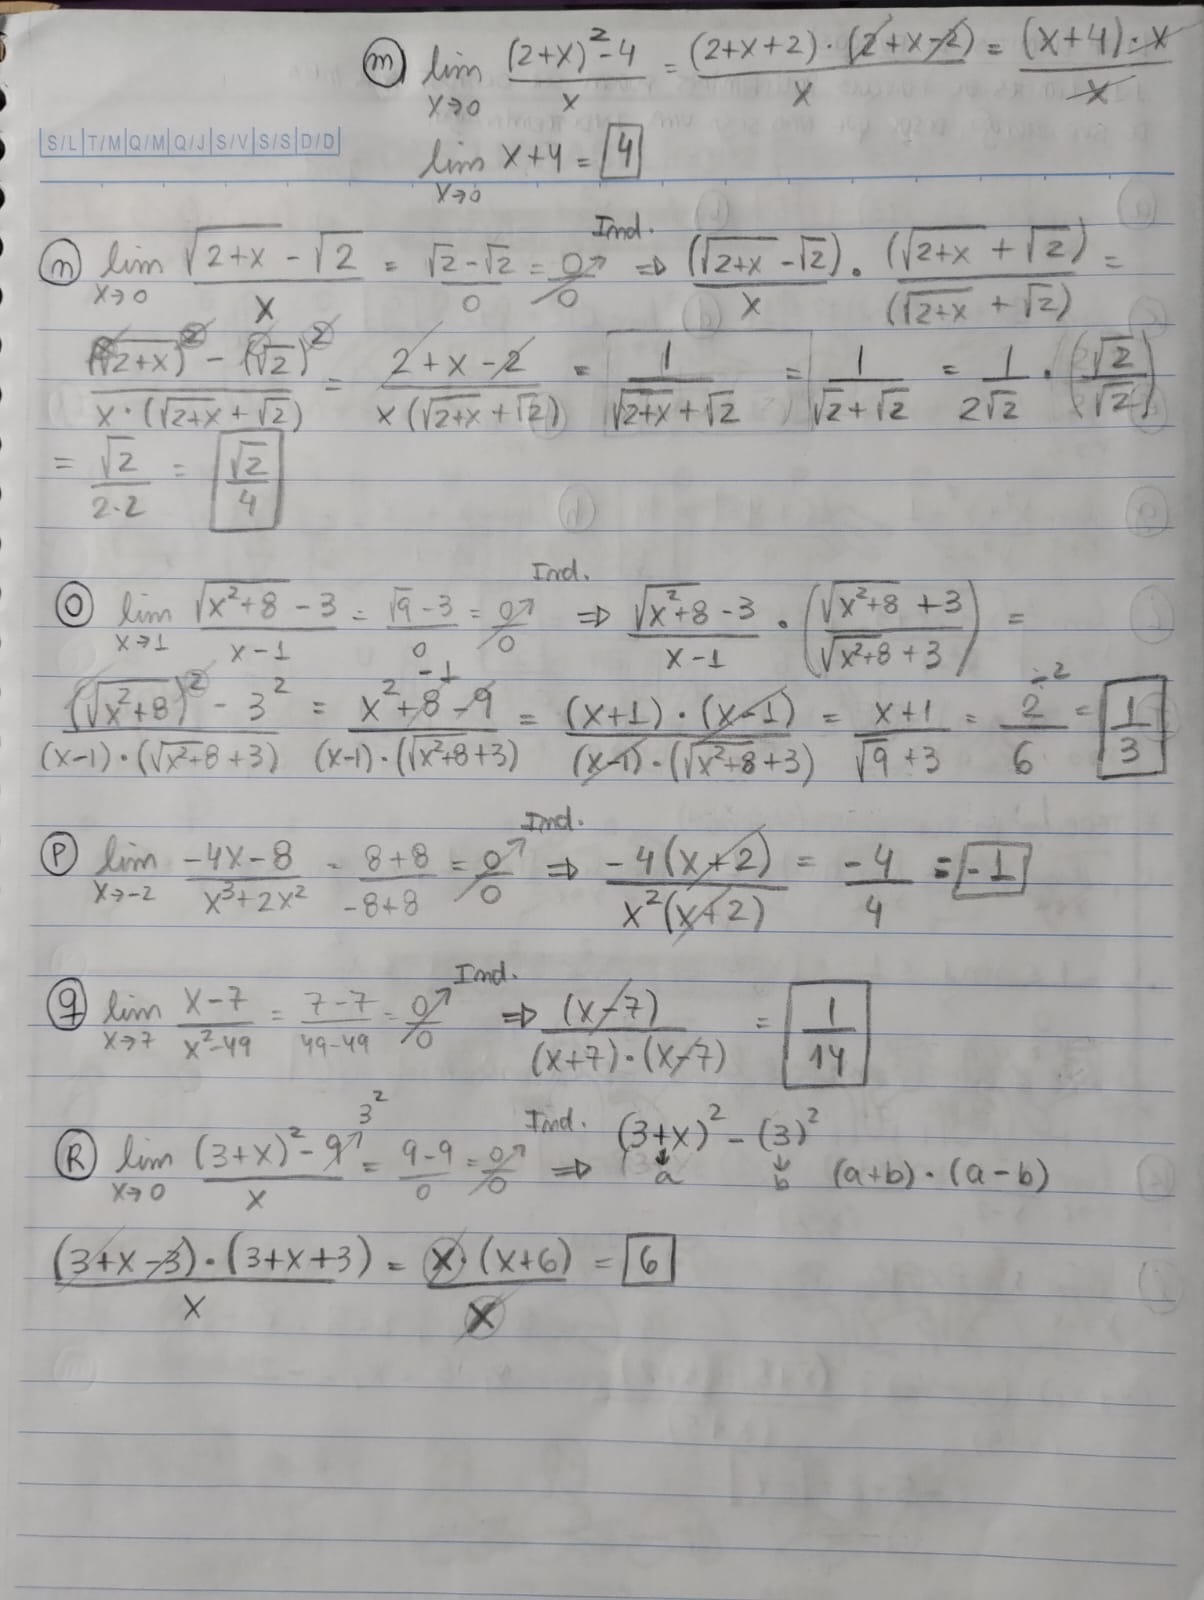 m) lim x→0 ((2+x)² - 4)/x = ((2+x+2)·(2+x-2))/x = ((x+4)·x)/x
S/L T/M Q/M Q/J S/V S/S D/D
lim x→0 x+4 = 4
n) lim x→0 (√(2+x) - √2)/x = (√2-√2)/0 = 0/0 Ind. ⇒ (√(2+x) - √2)/x · (√(2+x) + √2)/(√(2+x) + √2) =
((√(2+x))² - (√2)²)/(x·(√(2+x) + √2)) = (2+x-2)/(x(√(2+x) + √2)) = 1/(√(2+x) + √2) = 1/(√2+√2) = 1/(2√2) · (√2/√2)
= √2/(2·2) = √2/4
O) lim x→1 (√(x²+8) - 3)/(x-1) = (√9-3)/0 = 0/0 Ind. ⇒ (√(x²+8) - 3)/(x-1) · ((√(x²+8) + 3)/(√(x²+8) + 3)) =
((√(x²+8))² - 3²)/((x-1)·(√(x²+8) + 3)) = (x²+8-9)/((x-1)·(√(x²+8)+3)) -1 = ((x+1)·(x-1))/((x-1)·(√(x²+8)+3)) = (x+1)/(√9+3) = 2/6 ÷2 = 1/3
P) lim x→-2 (-4x-8)/(x³+2x²) = (8+8)/(-8+8) = 0/0 Ind. ⇒ (-4(x+2))/(x²(x+2)) = -4/4 = -1
q) lim x→7 (x-7)/(x²-49) = (7-7)/(49-49) = 0/0 Ind. ⇒ (x-7)/((x+7)·(x-7)) = 1/14
R) lim x→0 ((3+x)² - 9)/x 3² = (9-9)/0 = 0/0 Ind. ⇒ (3+x)² - (3)² a b (a+b)·(a-b)
((3+x-3)·(3+x+3))/x = (x·(x+6))/x = 6